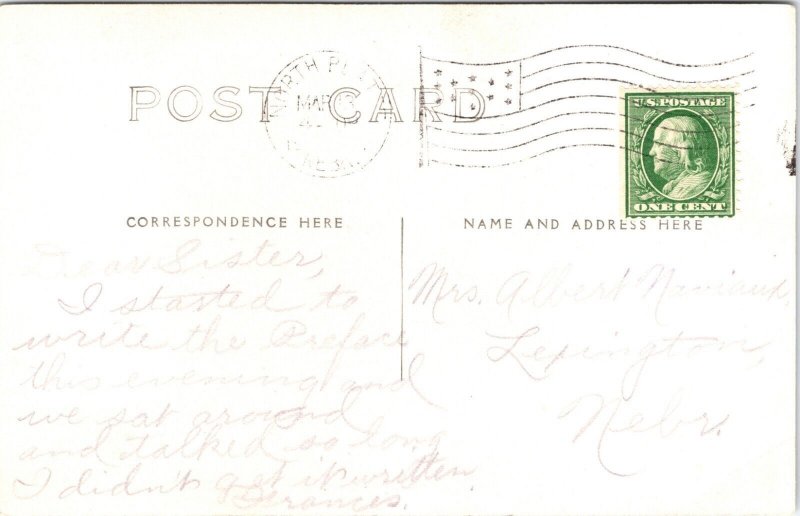 POST CARD
NORTH PLATTE
MAR 13
NEBR.
U.S. POSTAGE
ONE CENT
CORRESPONDENCE HERE
NAME AND ADDRESS HERE
Dear Sister,
I started to
write the Preface
this evening and
we sat around
and talked so long
I didn't get it written
Frances.
Mrs. Albert Naviaux,
Lexington,
Nebr.